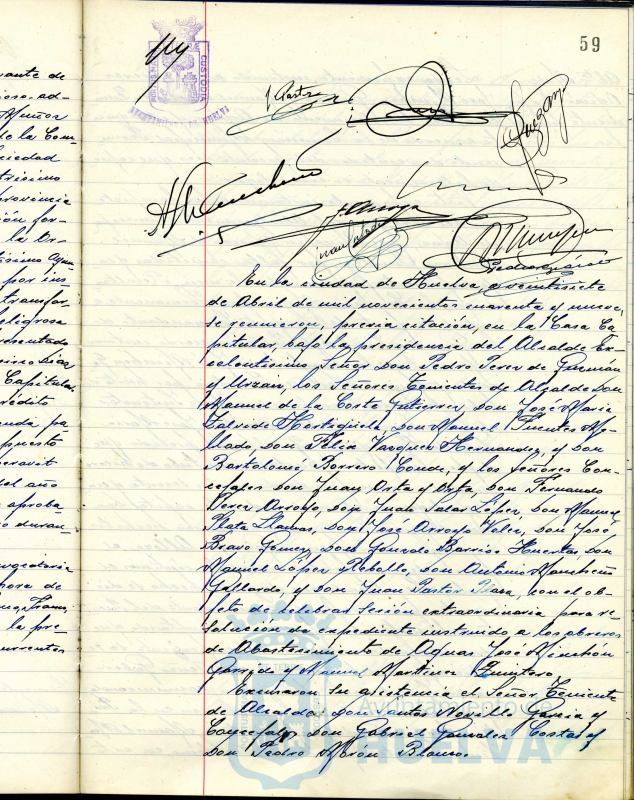 59
AYUNTAMIENTO DE HUELVA
CUSTODIA
J. Pastor
J. Arroyo
En la ciudad de Huelva, a veintisiete
de Abril de mil novecientos cuarenta y nueve,
se reunieron, previa citación, en la Casa Ca-
pitular, bajo la presidencia del Alcalde Ex-
celentísimo Señor Don Pedro Perez de Guzmán
y Urzaiz, los Señores Tenientes de Alcalde Don
Manuel de la Corte Gutierrez, Don José María
Don Manuel Fuentes Me-
llado, Don Felix Vazquez Hernandez, y Don
Bartolomé Borrero Conde, y los Señores Con-
cejales Don Juan Orta y Orta, Don Fernando
Perez Arroyo, Don Juan Salas López, Don Manuel
Plata Llamas, Don José Arroyo Don José
Bravo Gomez, Don Gonzalo Barrios Huertas Don
Manuel López y Rebollo, Don Antonio
Gallardo, y Don Juan Pastor Plaza, con el ob-
jeto de celebrar sesión extraordinaria para re-
solución de expediente instruido a los obreros
de Abastecimiento de Aguas José Minchón
Garrido y Manuel Martinez Quintero.
Excusaron su asistencia el Señor Teniente
de Alcalde Don Santos Novillo Garcia y
Concejales Don Gabriel Gonzalez Costas y
Don Pedro Morón Blanco.
Ayuntamiento de
HUELVA
ante de
Muñoz
de la Com-
ciedad
provincia
ción for-
la Or-
por ins-
transfor-
ligrosa
esentado
Diaz
Capitular
rédito
puesto
del año
aproba-
duran-
hora de
la pre-
urrentes